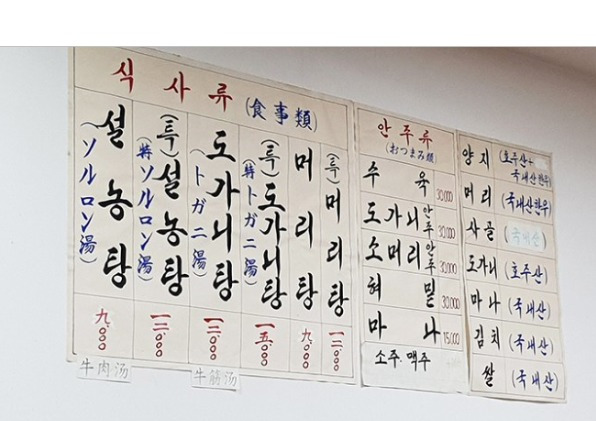 식사류 (食事類)
설농탕
(ソルロン湯)
九.000
牛肉汤
(특)설농탕
(特ソルロン湯)
一二.000
도가니탕
(トガニ湯)
一二.000
牛筋汤
(특)도가니탕
(特トガニ湯)
一五.000
머리탕
九.000
(특)머리탕
一二.000
안주류
(おつまみ類)
수육 30,000
도가니안주 30,000
소머리안주 30,000
혀밑 30,000
마나 15,000
소주·맥주
양지 (호주산+국내산한우)
머리 (국내산한우)
사골 (국내산)
도가니 (호주산)
마나 (국내산)
김치 (국내산)
쌀 (국내산)